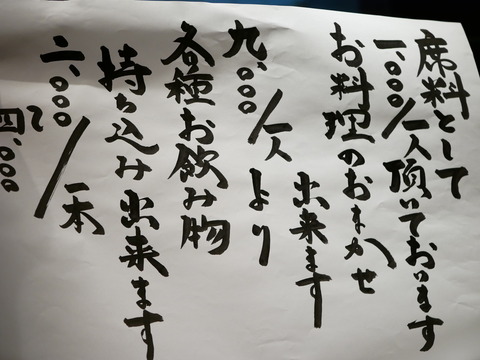 席料として
一、〇〇〇/一人頂いております
お料理のおまかせ
出来ます
九、〇〇〇/一人より
各種お飲み物
持ち込み出来ます
二、〇〇〇/一本
〜四、〇〇〇